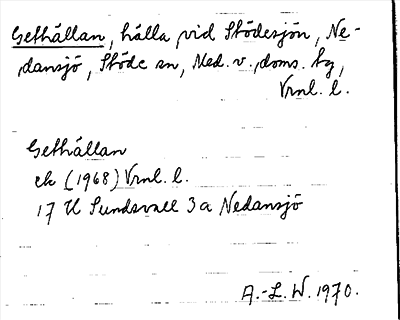 Gethällan, hälla vid Stödesjön, Ne-
dansjö, Stöde sn, Med. v. doms. tg,
Vrnl. l.
Gethällan
ek (1968) Vrnl. l.
17 H Sundsvall 3a Nedansjö
A.-L. W. 1970.